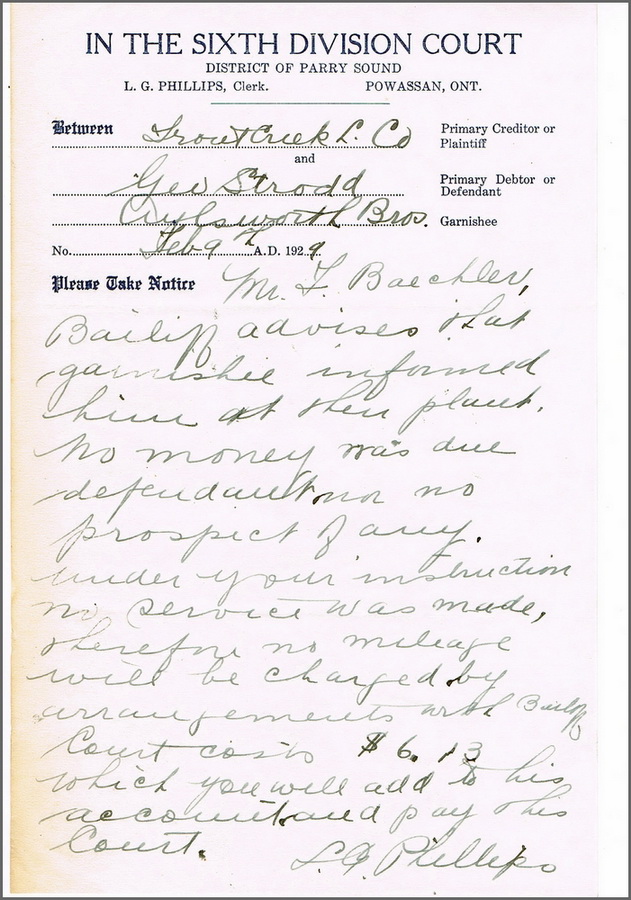 IN THE SIXTH DIVISION COURT
DISTRICT OF PARRY SOUND
L. G. PHILLIPS, Clerk. POWASSAN, ONT.
Between Trout Creek L. Co Primary Creditor or Plaintiff
and
Geo Strodd Primary Debtor or Defendant
Aylsworth Bros. Garnishee
No. Feb 9th A.D. 1929.
Please Take Notice Mr. F. Baechler,
Bailiff advises that
garnishee informed
him at their plant.
No money was due
defendant nor no
prospect of any.
under your instruction
no service was made,
therefore no mileage
will be charged by
arrangements with Bailiff
Court costs $6.13
which you will add to his
account and pay this
Court.
L.G. Phillips